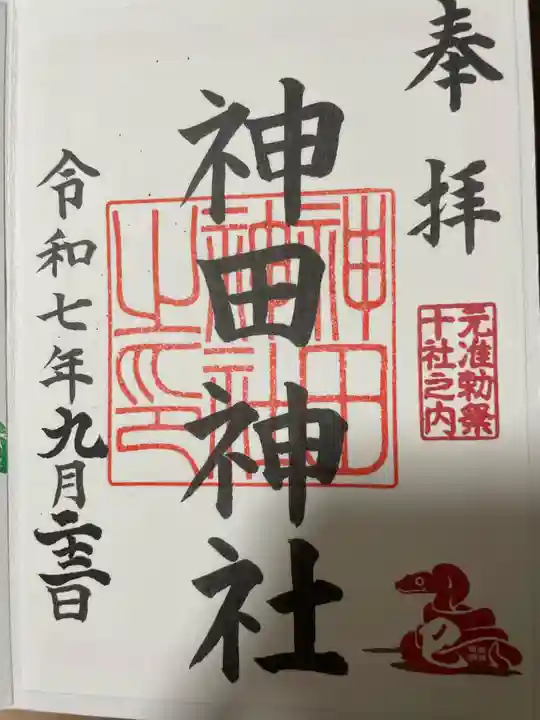 奉拝
元准勅祭
十社之内
巳
神田神社
神田
神社
之印
令和七年九月二十三日